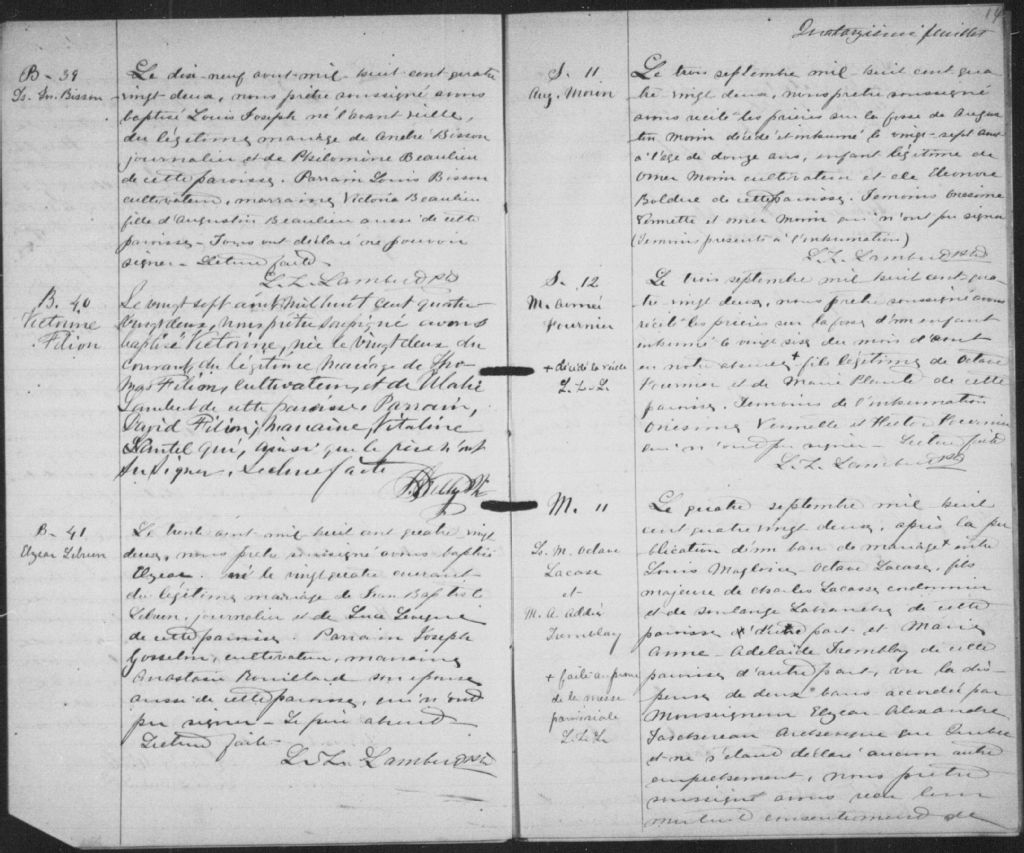 B - 39
Ls. Jos. Bisson
Le dix-neuf aout mil huit cent quatre
vingt deux, nous prêtre soussigné avons
baptisé Louis Joseph né l'avant veille,
du légitime mariage de André Bisson
journalier et de Philomène Beaulieu
de cette paroisse. Parrain Louis Bisson
cultivateur, marraine Victoria Beaulieu
fille d'Augustin Beaulieu aussi de cette
paroisse - Tous ont déclaré ne pouvoir
signer - Lecture faite -
L. Z. Lambert ptre
B. 40
Victorine
Filion
Le vingt sept aout mil huit cent quatre
vingt deux, nous prêtre soussigné avons
baptisé Victorine, née le vingt deux du
courant, du légitime mariage de Tho-
mas Filion, cultivateur, et de Marie
Lambert de cette paroisse. Parrain,
David Filion, marraine, Vitaline
qui, ainsi que le père n'ont
su signer. Lecture faite
Ptre
B - 41
Elzear Lebrun
Le trente aout mil huit cent quatre vingt
deux, nous prêtre soussigné avons baptisé
Elzear né le vingt quatre courant
du légitime mariage de Jean Baptiste
Lebrun, journalier et de Luce
de cette paroisse. Parrain Joseph
Gosselin, cultivateur, marraine
Anastasie Rouillard son épouse
aussi de cette paroisse, qui n'ont
pu signer - Le père absent
Lecture faite
L. Z. Lambert ptre
14
Quatorzième feuillet
S. 11
Aug. Morin
Le trois septembre mil huit cent qua
tre vingt deux, nous prêtre soussigné
avons récité les prières sur la fosse de Augus
tin Morin décédé et inhumé le vingt-sept aout
à l'âge de douze ans, enfant légitime de
Omer Morin cultivateur et de Eleonore
Bolduc de cette paroisse. Temoins Onesime
Vermette et Omer Morin qui n'ont pu signer
(Temoins presents à l'inhumation)
L. Z. Lambert ptre
S. 12
M. Aimée
Fournier
+ décédé la veille
L. Z. L.
Le trois septembre mil huit cent qua-
tre vingt deux, nous prêtre soussigné avons
récité les prières sur la fosse d'un enfant
inhumé le vingt six du mois d'aout
en notre absence + fils légitime de Octave
Fournier et de Marie Plante de cette
paroisse. Temoins de l'inhumation
Onesime Vermette et Hector Fournier
qui n'ont pu signer - Lecture faite
L. Z. Lambert ptre
M. 11
Ls. M. Octave
Lacasse
et
M. A. Addée
Tremblay
+ faite au prone
de la messe
paroissiale
L. Z. L
Le quatre septembre mil huit
cent quatre vingt deux, après la pu
blication d'un ban de mariage + entre
Louis Magloire Octave Lacasse, fils
majeure de Charles Lacasse cordonnier
et de Soulange Labranche de cette
paroisse d'une part et Marie
Anne - Adelaide Tremblay de cette
paroisse d'autre part, vu la dis-
pense de deux bans accordée par
Monseigneur Elzear-Alexandre
Taschereau Archevêque de Québec
et ne s'étant déclaré aucun autre
empêchement, nous prêtre
soussigné avons reçu leur
mutuel consentement de